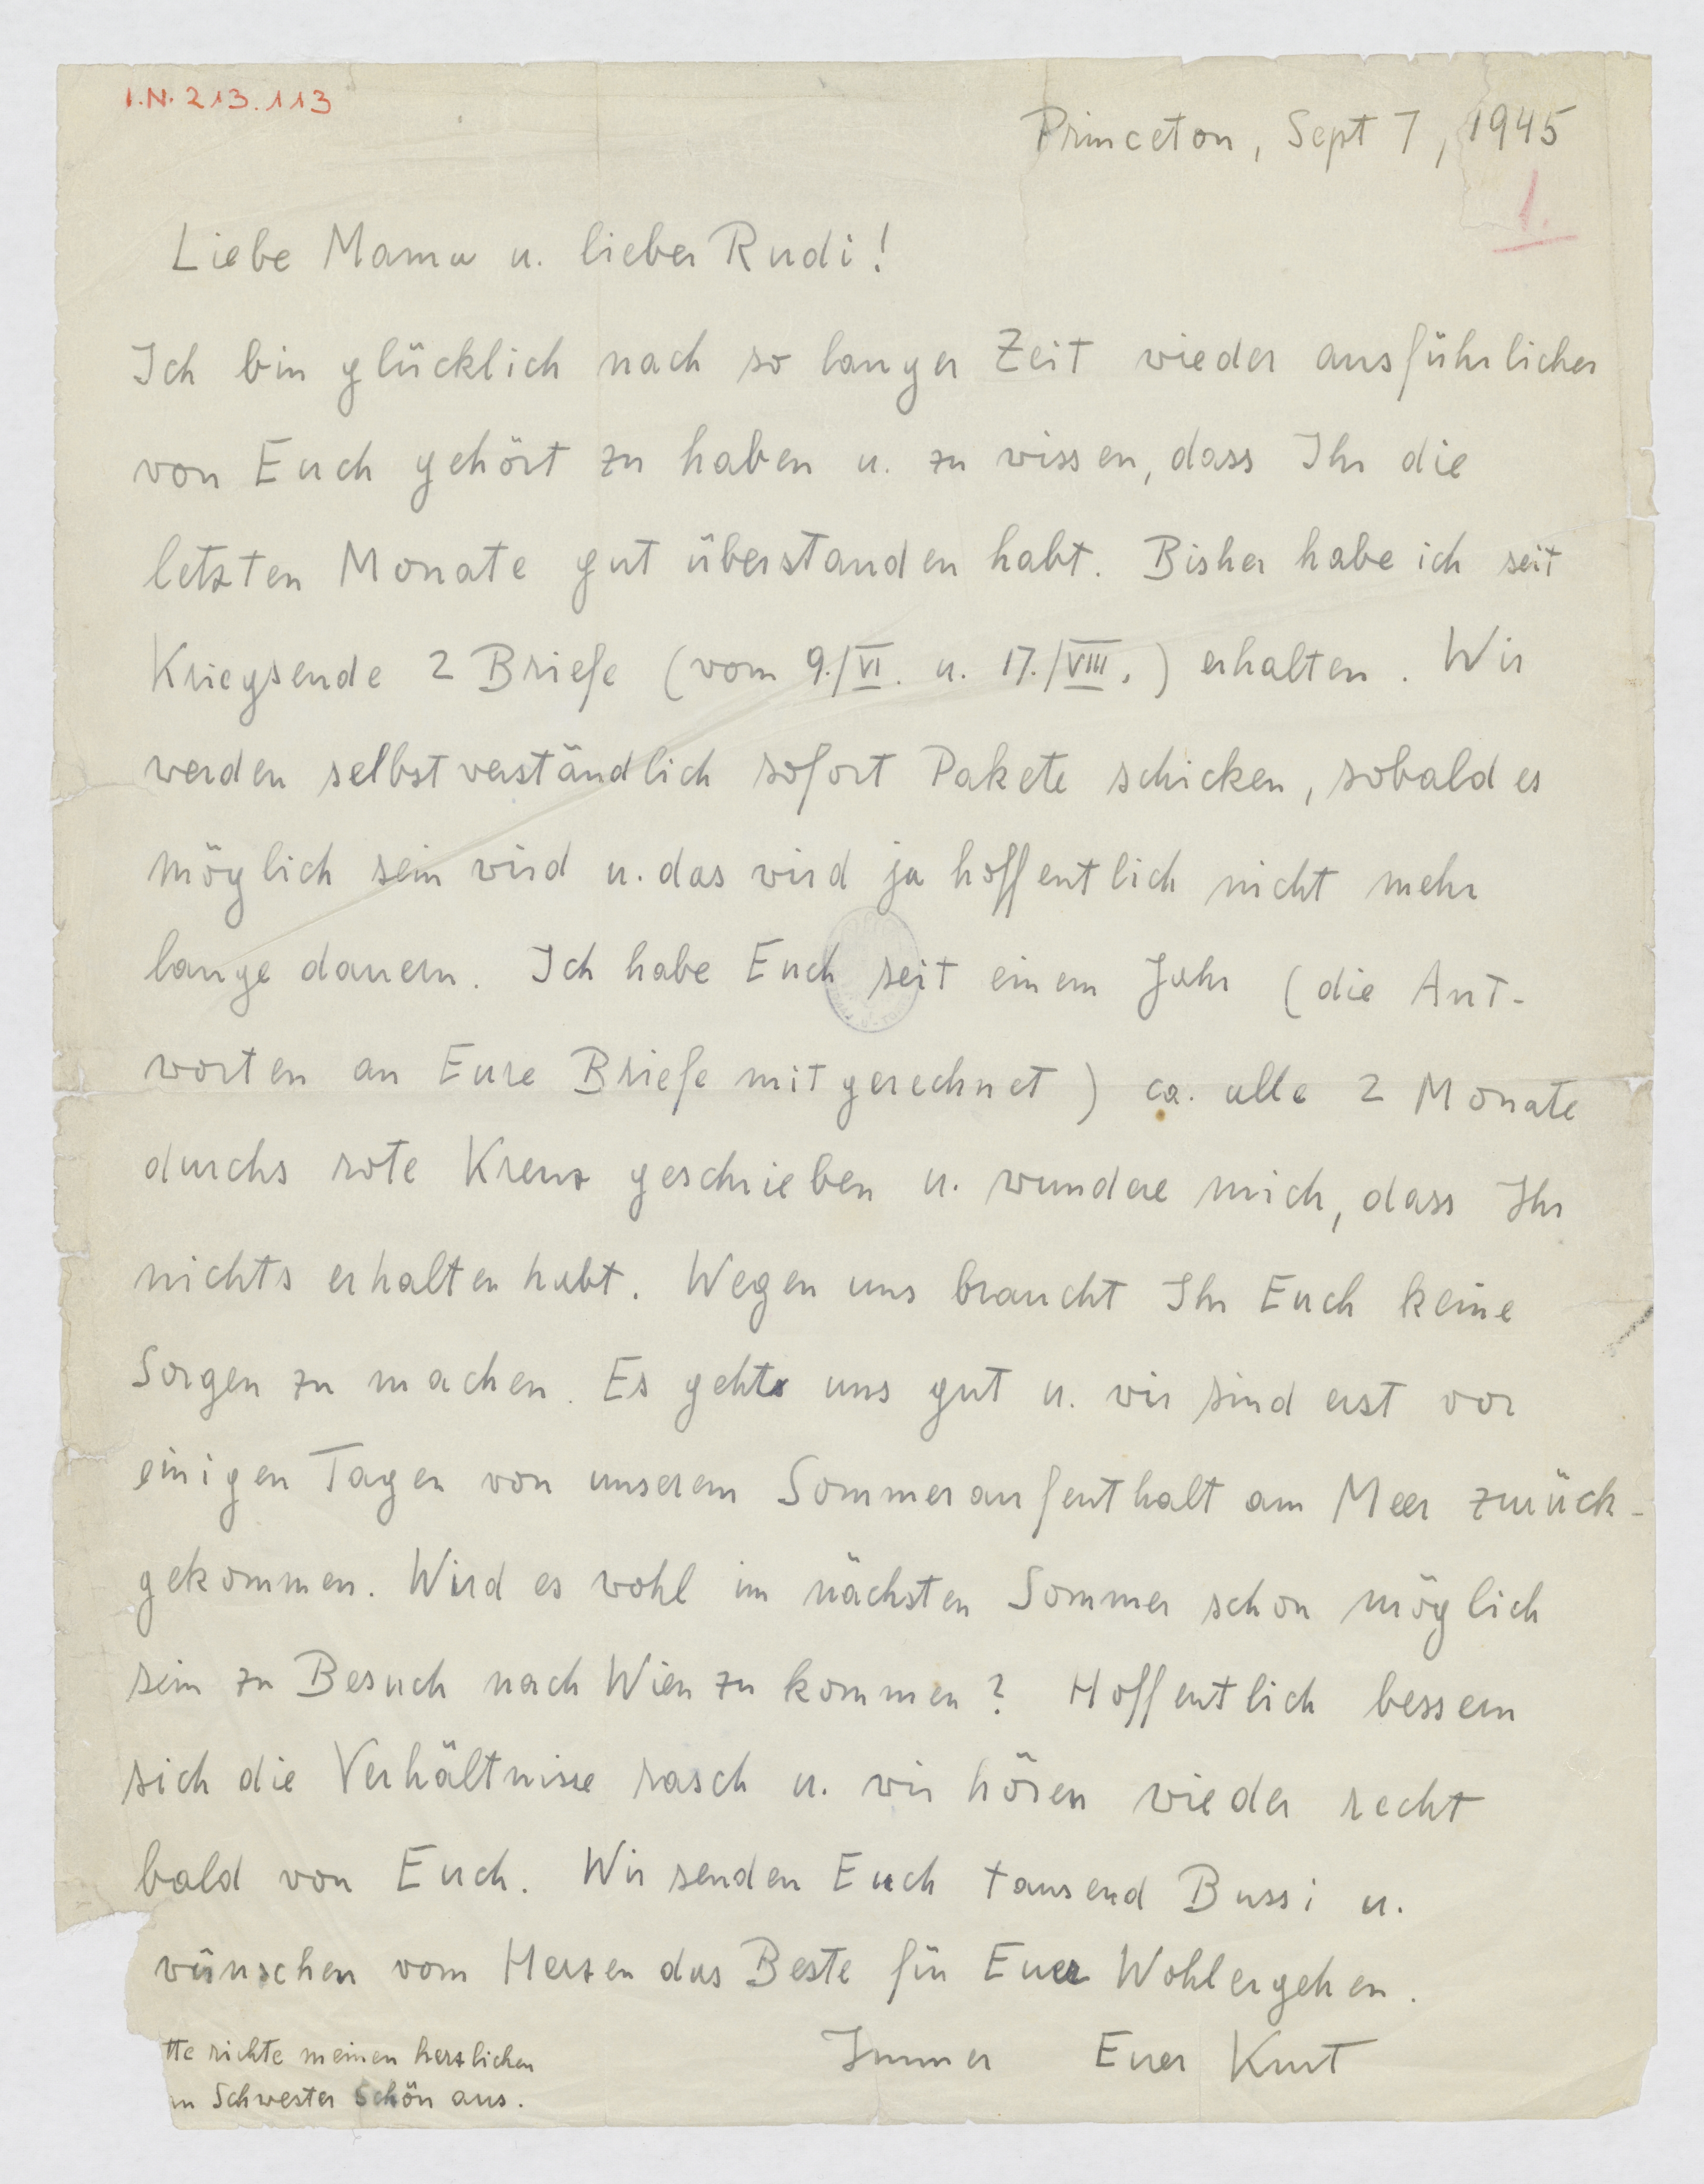 I.N. 213.113
Princeton, Sept 7, 1945
1.
Liebe Mama u. lieber Rudi!
Ich bin glücklich nach so langer Zeit wieder ausführlicher
von Euch gehört zu haben u. zu wissen, dass Ihr die
letzten Monate gut überstanden habt. Bisher habe ich seit
Kriegsende 2 Briefe (vom 9./VI. u. 17./VIII.) erhalten. Wir
werden selbstverständlich sofort Pakete schicken, sobald es
möglich sein wird u. das wird ja hoffentlich nicht mehr
lange dauern. Ich habe Euch seit einem Jahr (die Ant-
worten an Eure Briefe mitgerechnet) ca. alle 2 Monate
durchs rote Kreuz geschrieben u. wundere mich, dass Ihr
nichts erhalten habt. Wegen uns braucht Ihr Euch keine
Sorgen zu machen. Es geht uns gut u. wir sind erst vor
einigen Tagen von unserem Sommeraufenthalt am Meer zurück-
gekommen. Wird es wohl im nächsten Sommer schon möglich
sein zu Besuch nach Wien zu kommen? Hoffentlich bessern
sich die Verhältnisse rasch u. wir hören wieder recht
bald von Euch. Wir senden Euch tausend Bussi u.
wünschen vom Herzen das Beste für Euer Wohlergehen.
Immer Euer Kurt
tte richte meinen herzlichen
n Schwester Schön aus.